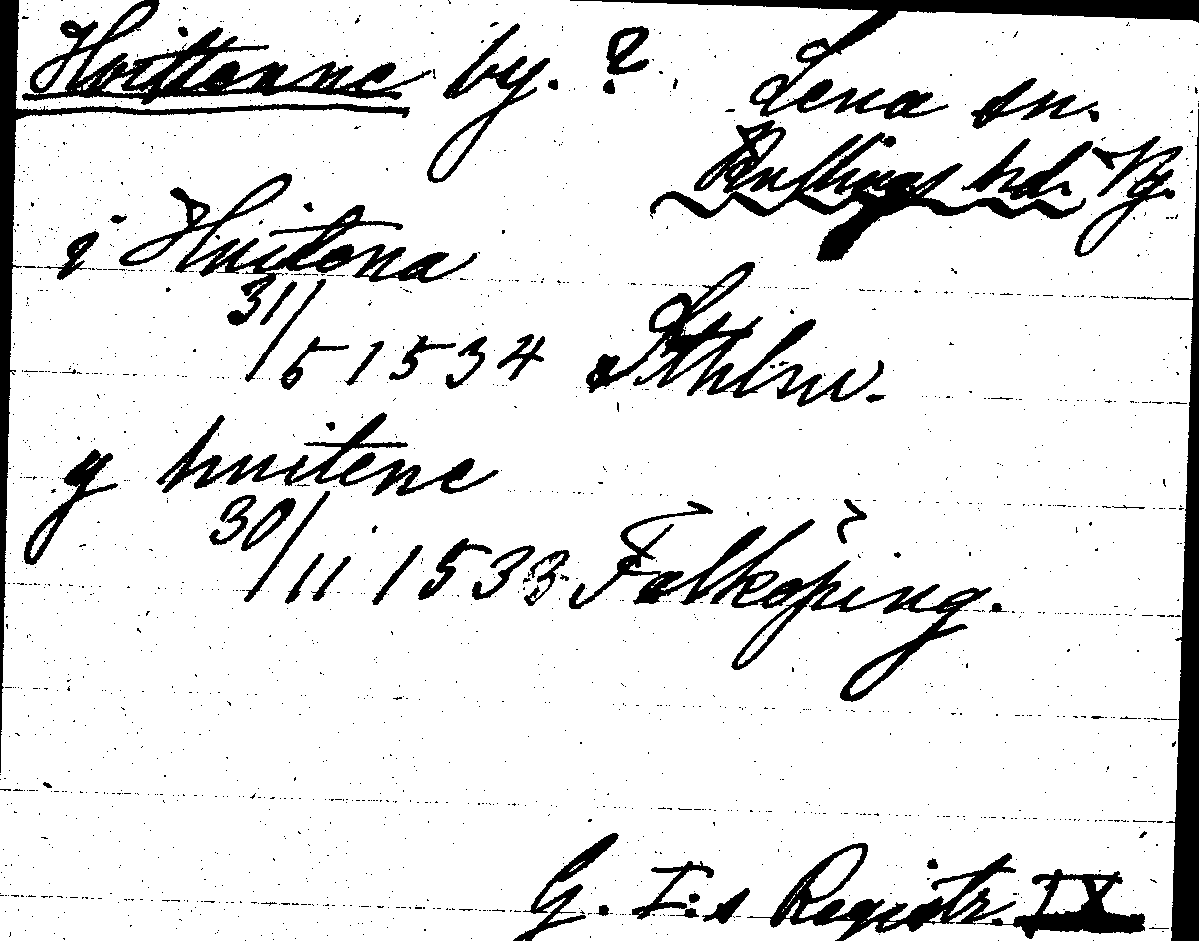 Hvittenne by. ? Lena sn.
Kullings hd. Vg.
i Hvitena
31/5 1534 Sthlm.
y hvitene
30/11 1533 Falköping.
G. I:s Registr. IX